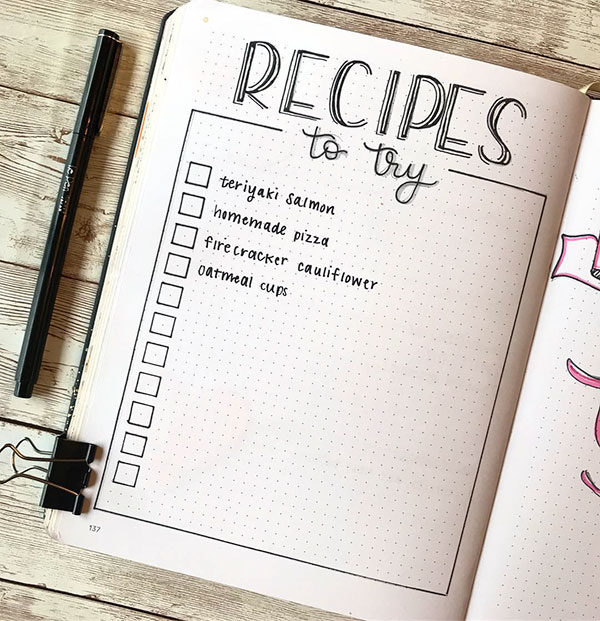 RECIPES
to try
teriyaki salmon
homemade pizza
firecracker cauliflower
oatmeal cups
137